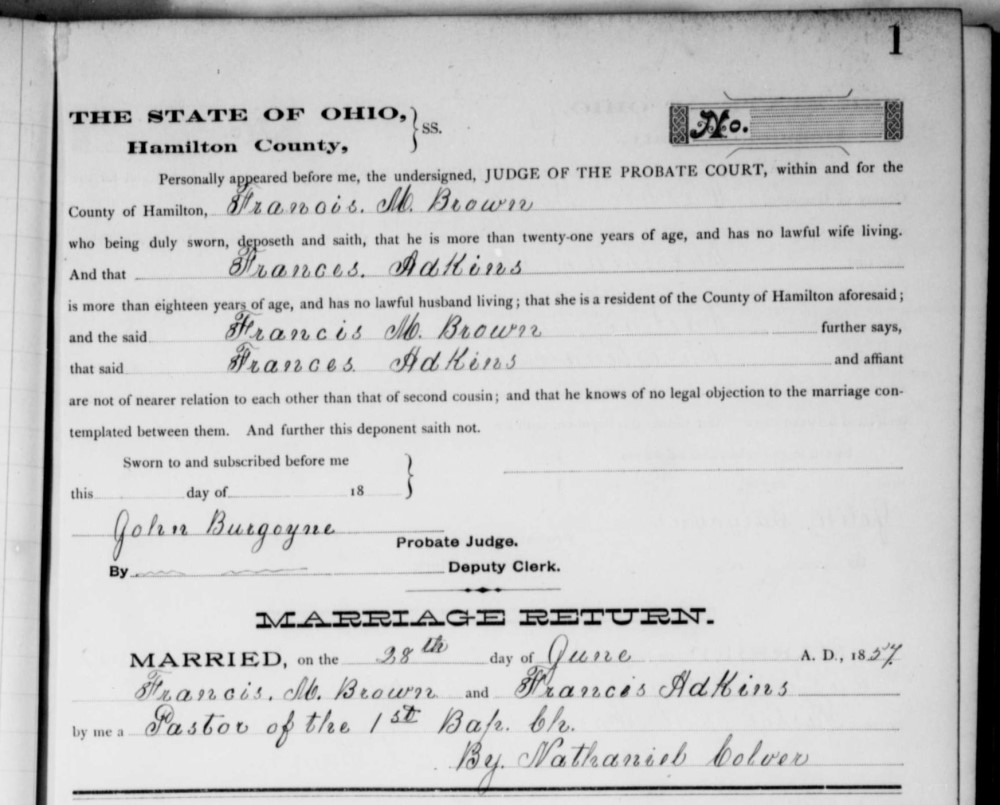 1
THE STATE OF OHIO, } SS.
Hamilton County,
No.
Personally appeared before me, the undersigned, JUDGE OF THE PROBATE COURT, within and for the
County of Hamilton, Francis. M. Brown
who being duly sworn, deposeth and saith, that he is more than twenty-one years of age, and has no lawful wife living.
And that Frances. Adkins
is more than eighteen years of age, and has no lawful husband living; that she is a resident of the County of Hamilton aforesaid;
and the said Francis M. Brown further says,
that said Frances. Adkins and affiant
are not of nearer relation to each other than that of second cousin; and that he knows of no legal objection to the marriage con-
templated between them. And further this deponent saith not.
Sworn to and subscribed before me }
this day of 18
John Burgoyne Probate Judge.
By Deputy Clerk.
MARRIAGE RETURN.
MARRIED, on the 28th day of June A. D., 1857
Francis. M. Brown and Francis Adkins
by me a Pastor of the 1st Bap. Ch.
By. Nathaniel Colver